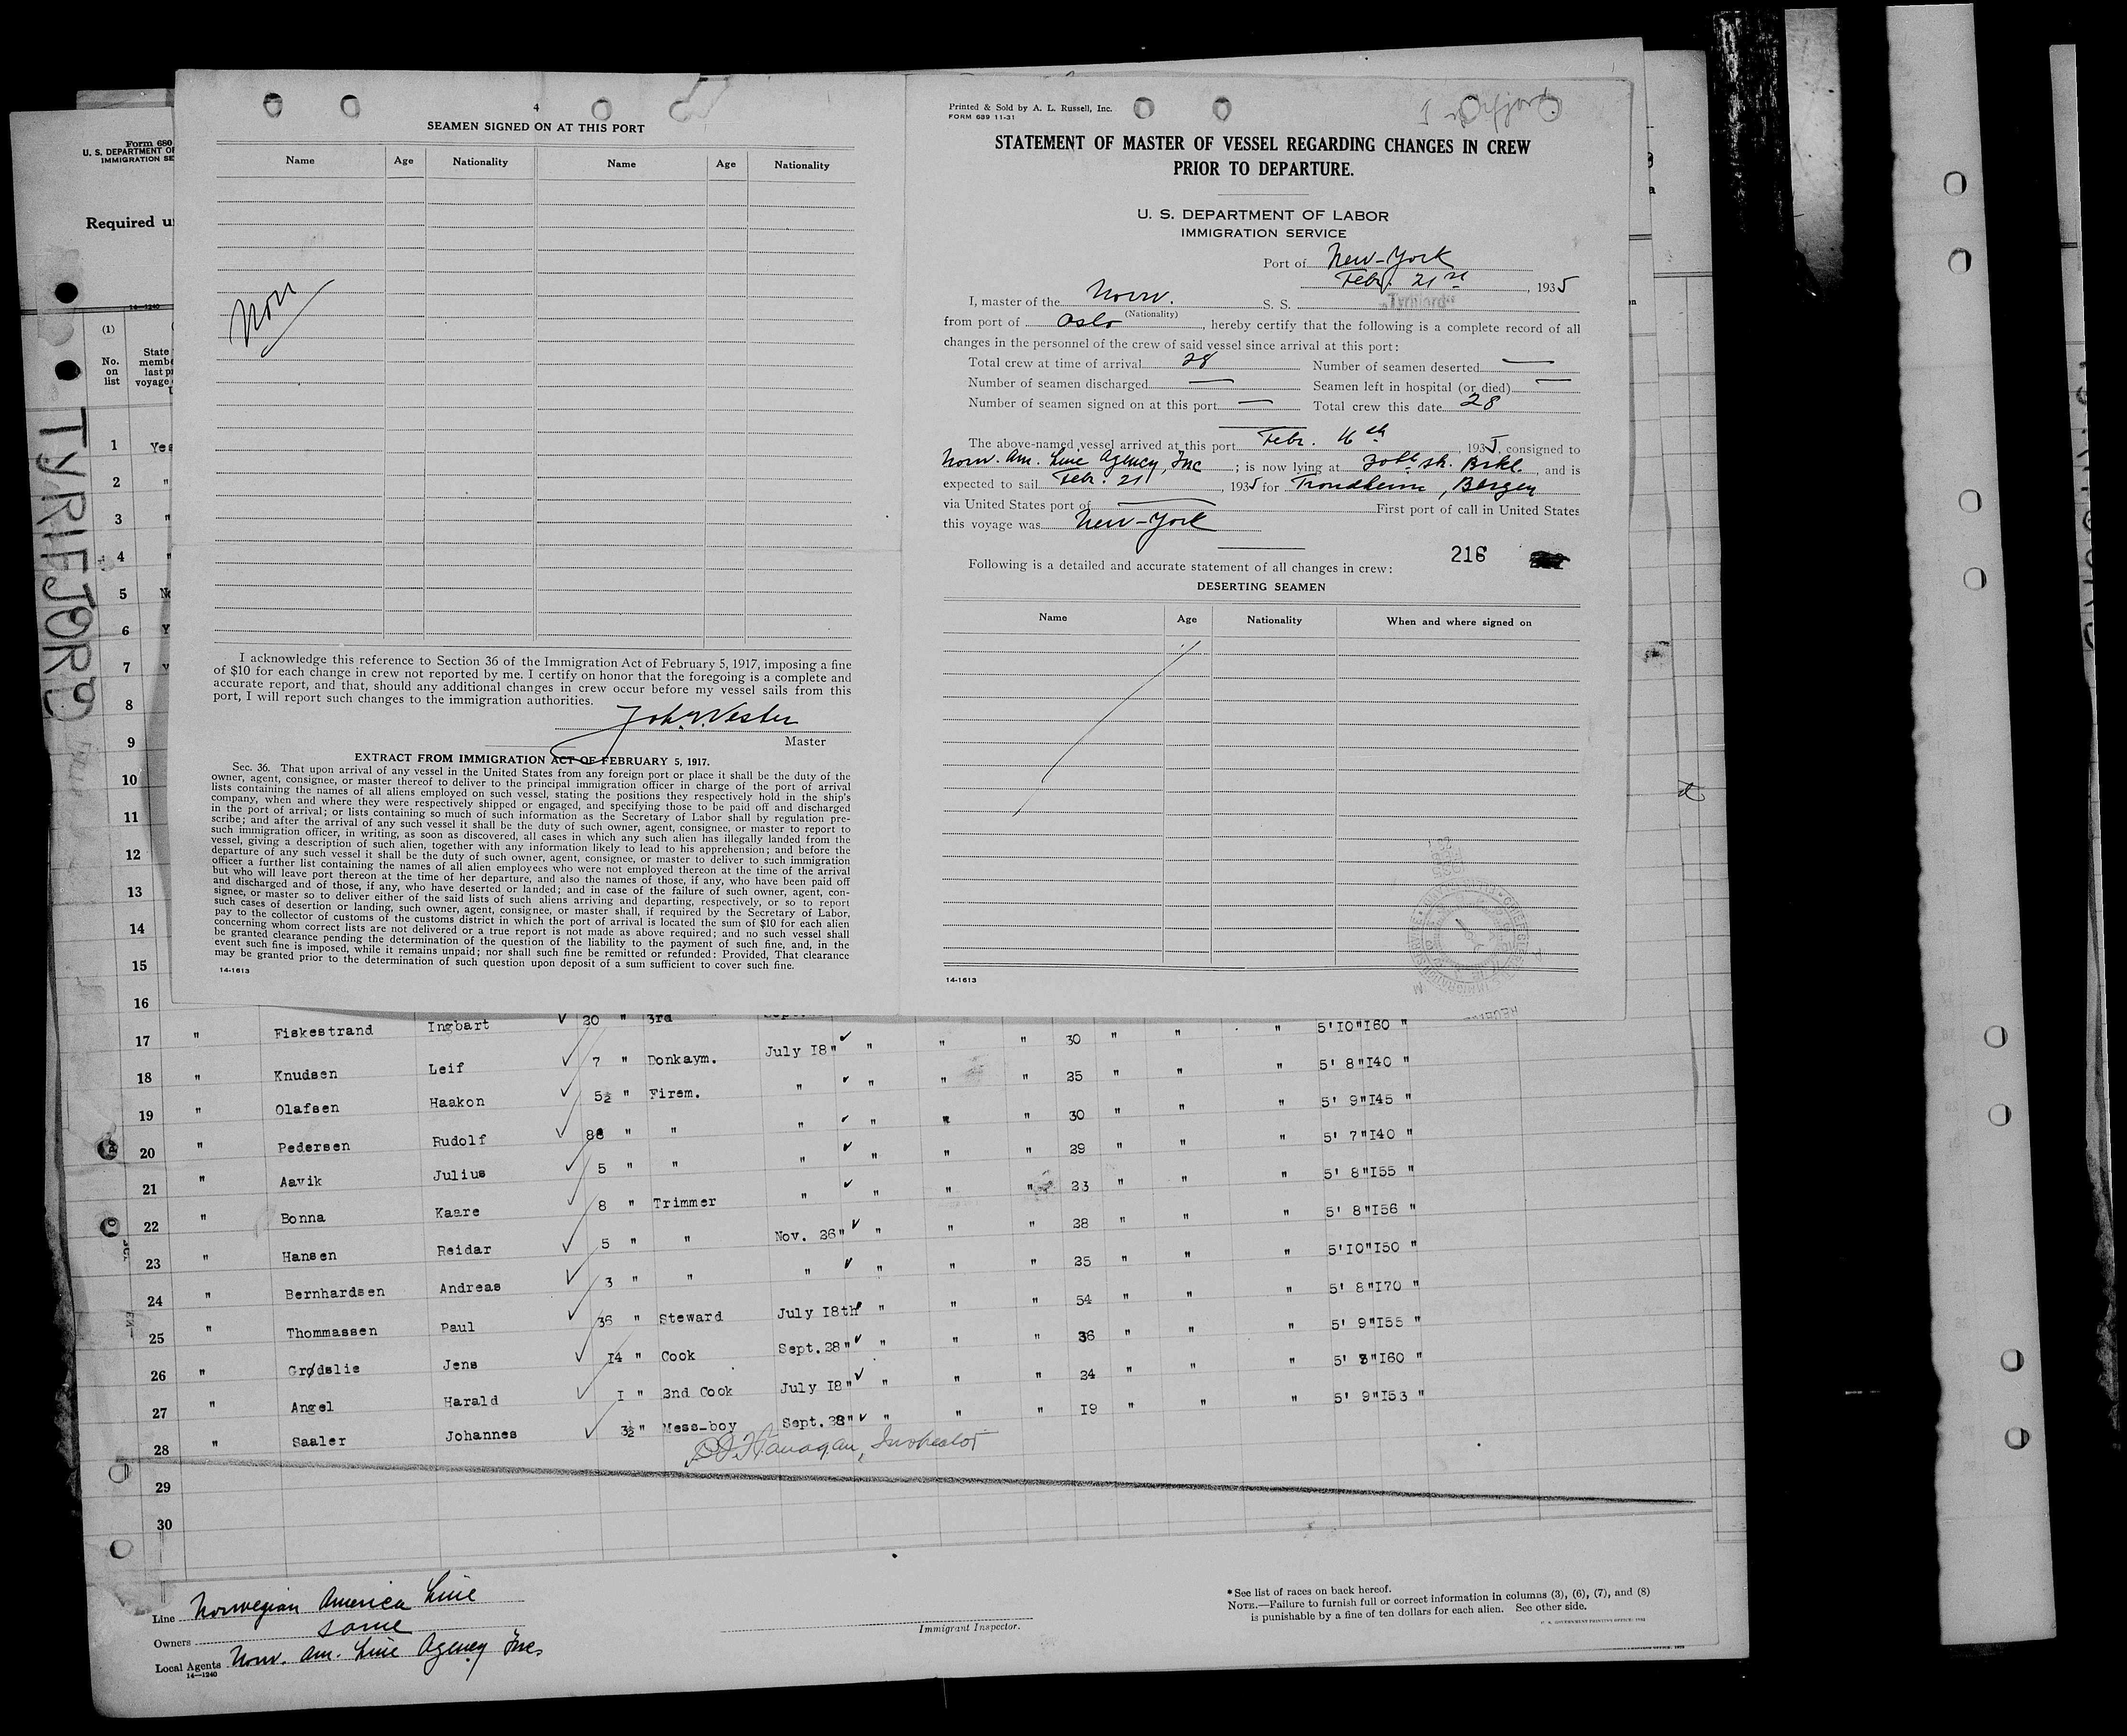 Form 680
U. S. DEPARTMENT OF
IMMIGRATION SE
Required u
14—1240
(1)
No.
on
list
State
membe
last p
voyage
TYRIFJORD
1 Yes
2 "
3 "
4 "
5 No
6 Y
7
8
9
10
11
12
13
14
15
16
4
SEAMEN SIGNED ON AT THIS PORT
Name Age Nationality Name Age Nationality
Non
I acknowledge this reference to Section 36 of the Immigration Act of February 5, 1917, imposing a fine
of $10 for each change in crew not reported by me. I certify on honor that the foregoing is a complete and
accurate report, and that, should any additional changes in crew occur before my vessel sails from this
port, I will report such changes to the immigration authorities.
Joh. Vester
Master
EXTRACT FROM IMMIGRATION ACT OF FEBRUARY 5, 1917.
Sec. 36. That upon arrival of any vessel in the United States from any foreign port or place it shall be the duty of the
owner, agent, consignee, or master thereof to deliver to the principal immigration officer in charge of the port of arrival
lists containing the names of all aliens employed on such vessel, stating the positions they respectively hold in the ship's
company, when and where they were respectively shipped or engaged, and specifying those to be paid off and discharged
in the port of arrival; or lists containing so much of such information as the Secretary of Labor shall by regulation pre-
scribe; and after the arrival of any such vessel it shall be the duty of such owner, agent, consignee, or master to report to
such immigration officer, in writing, as soon as discovered, all cases in which any such alien has illegally landed from the
vessel, giving a description of such alien, together with any information likely to lead to his apprehension; and before the
departure of any such vessel it shall be the duty of such owner, agent, consignee, or master to deliver to such immigration
officer a further list containing the names of all alien employees who were not employed thereon at the time of the arrival
but who will leave port thereon at the time of her departure, and also the names of those, if any, who have been paid off
and discharged and of those, if any, who have deserted or landed; and in case of the failure of such owner, agent, con-
signee, or master so to deliver either of the said lists of such aliens arriving and departing, respectively, or so to report
such cases of desertion or landing, such owner, agent, consignee, or master shall, if required by the Secretary of Labor,
pay to the collector of customs of the customs district in which the port of arrival is located the sum of $10 for each alien
concerning whom correct lists are not delivered or a true report is not made as above required; and no such vessel shall
be granted clearance pending the determination of the question of the liability to the payment of such fine, and, in the
event such fine is imposed, while it remains unpaid; nor shall such fine be remitted or refunded: Provided, That clearance
may be granted prior to the determination of such question upon deposit of a sum sufficient to cover such fine.
14-1613
Printed & Sold by A. L. Russell, Inc.
FORM 689 11-31
STATEMENT OF MASTER OF VESSEL REGARDING CHANGES IN CREW
PRIOR TO DEPARTURE.
U. S. DEPARTMENT OF LABOR
IMMIGRATION SERVICE
Port of New-York
Febr. 21st, 1935
I, master of the Norw. S. S. „Tyrifjord"
(Nationality)
from port of Oslo, hereby certify that the following is a complete record of all
changes in the personnel of the crew of said vessel since arrival at this port:
Total crew at time of arrival 28 Number of seamen deserted —
Number of seamen discharged — Seamen left in hospital (or died) —
Number of seamen signed on at this port — Total crew this date 28
The above-named vessel arrived at this port Febr. 16th, 1935, consigned to
Norw. Am. Line Agency, Inc; is now lying at 30th str. Brkl., and is
expected to sail Febr. 21, 1935 for Trondheim, Bergen
via United States port of — First port of call in United States
this voyage was New-York
216
Following is a detailed and accurate statement of all changes in crew:
DESERTING SEAMEN
Name Age Nationality When and where signed on
14-1613
17 " Fiskestrand Ingbart 20 " 3rd " " " " 30 " " " 5'10" 160 "
18 " Knudsen Leif 7 " Donkaym. July 18" " " " 25 " " " 5' 8" 140 "
19 " Olafsen Haakon 5½ " Firem. " " " " 30 " " " 5' 9" 145 "
20 " Pedersen Rudolf " " " " " " 29 " " " 5' 7" 140 "
21 " Aavik Julius 5 " " " " " " 23 " " " 5' 8" 155 "
22 " Bonna Kaare 8 " Trimmer " " " " 28 " " " 5' 8" 156 "
23 " Hansen Reidar 5 " " Nov. 26" " " " 25 " " " 5'10" 150 "
24 " Bernhardsen Andreas 3 " " " " " " 54 " " " 5' 8" 170 "
25 " Thommassen Paul 36 " Steward July 18th " " " 36 " " " 5' 9" 155 "
26 " Grødslie Jens 14 " Cook Sept. 28" " " " 24 " " " 5' 8" 160 "
27 " Angel Harald 1 " 2nd Cook July 18" " " " 19 " " " 5' 9" 153 "
28 " Saaler Johannes 3½ " Mess-boy Sept. 28" " "
Flanagan, Inspector
29
30
Line Norwegian America Line
Owners same
Local Agents Norw. Am. Line Agency Inc.
14—1240
Immigrant Inspector.
* See list of races on back hereof.
NOTE.—Failure to furnish full or correct information in columns (3), (6), (7), and (8)
is punishable by a fine of ten dollars for each alien. See other side.